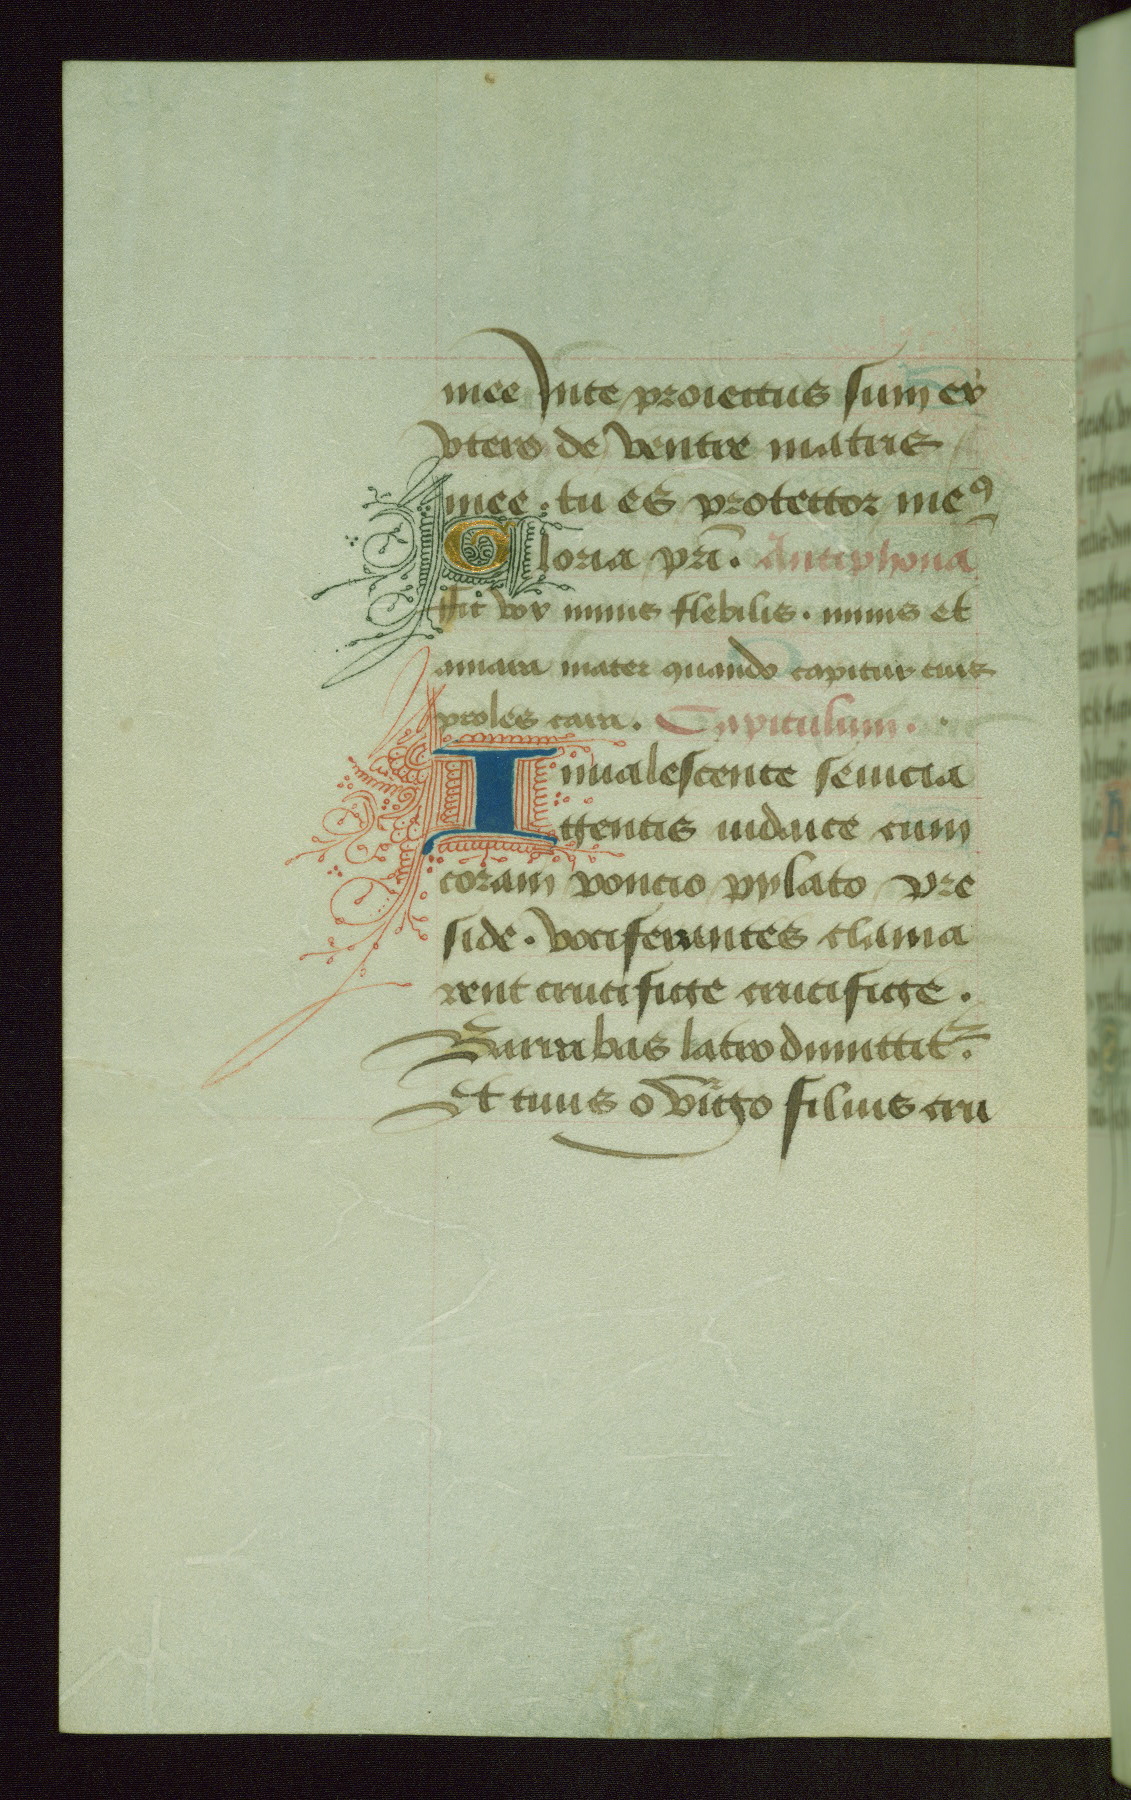 mee Inte proiectus sum ex
vtero de ventre matris
mee . tu es protector meꝰ
Gloria pri̅ . Antiphona
Fit vox nimis flebilis . nimis et
amara mater quando capitur eius
proles cara . Capitulum .
Inualescente seuicia
gentis iudaice cum
coram poncio pylato pre
side . vociferantes clama
rent crucifige crucifige .
Barrabas latro dimittit᷑ .
Et tuus o virgo filius cru